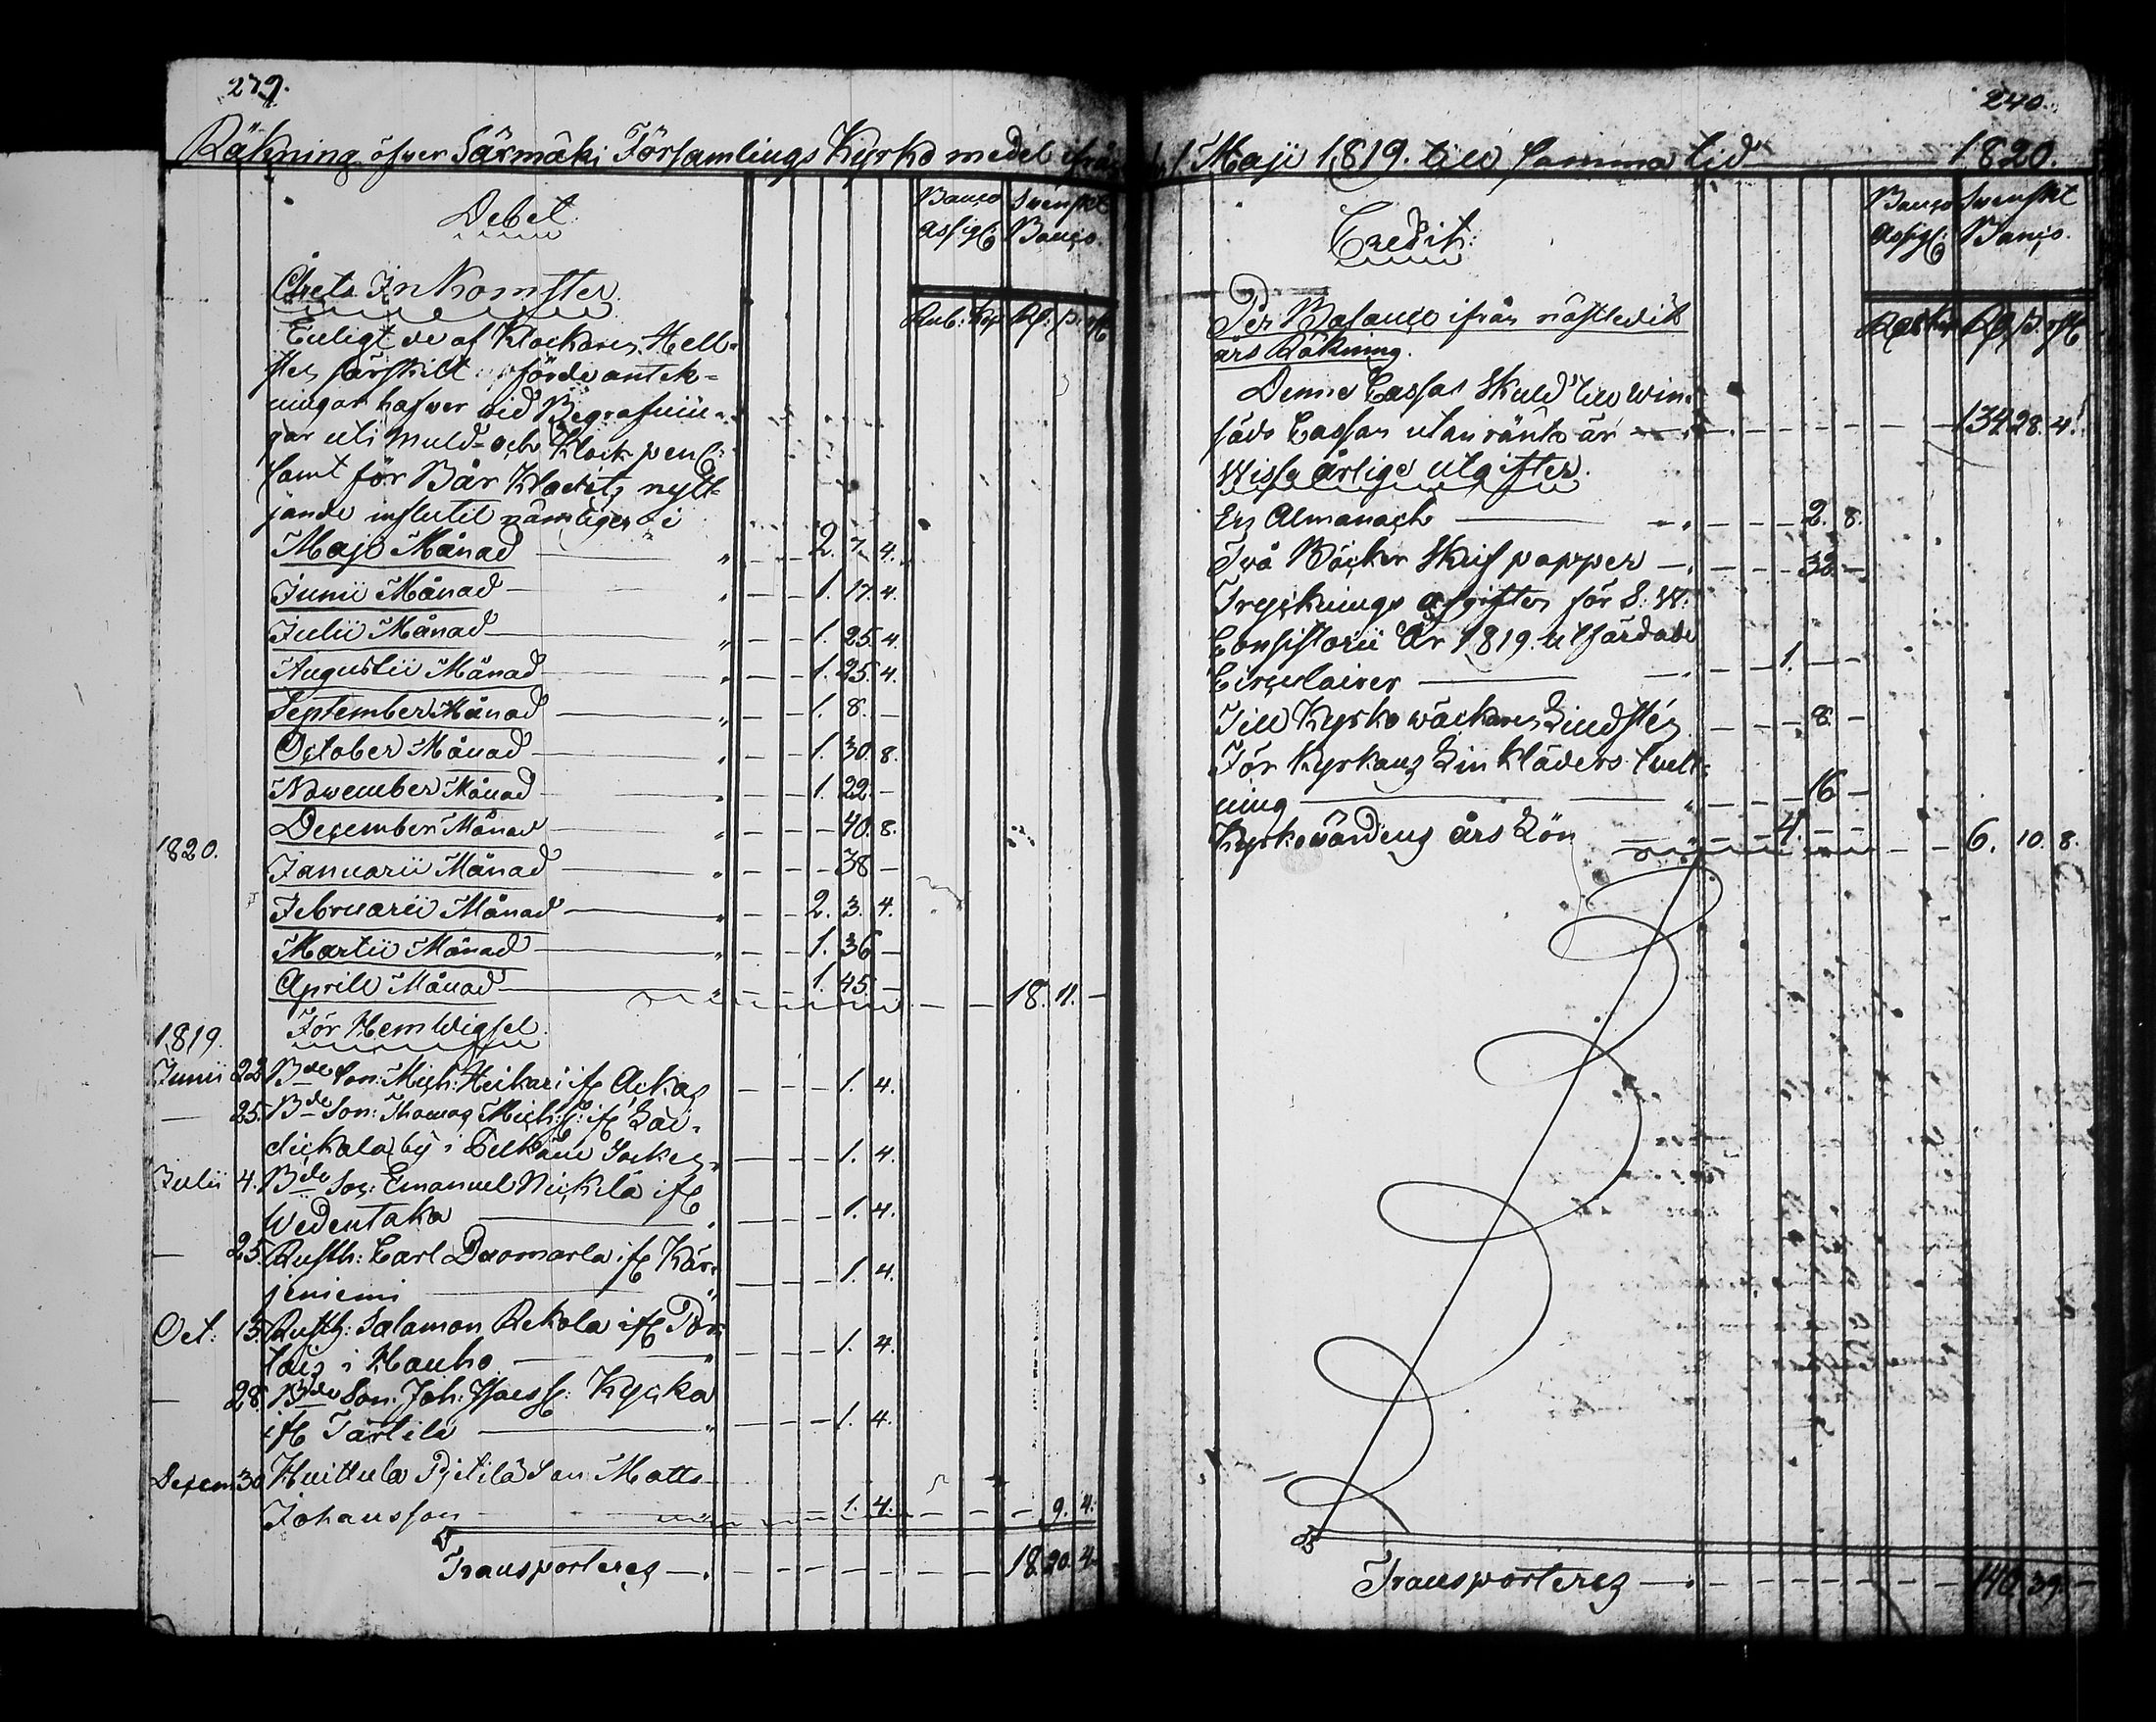 279.
Räkning öfver Säxmäki Församlings Kyrko medel ifrån
Debet.
Banco Svenskt
Assigr Banço.
Rub: Kop Rd: s: rst
Årets Inkomster.
Enligt de af Klockaren Hell-
sten särskilt förde antek-
ningar hafver vid Begrafnin-
gar uti Muld- och Klock peng:
samt för Bår Klädets nytt-
jande influtit nämligen i
Maji Månad " - - 2. 7. 4.
Junii Månad " - - 1. 17. 4.
Julii Månad " - - 1. 25. 4.
Augustii Månad " - - 1. 25. 4.
September Månad " - - 1. 8. -
October Månad " - - 1. 30. 8.
November Månad " - - 1. 22. -
December Månad " - - - 40. 8.
1820.
Januarii Månad " - - - 38 -
Februarii Månad " - - 2. 3. 4.
Martii Månad " - - 1. 36 -
Aprill Månad " - - 1. 45 - - - 18. 11. -
1819. För Hem Wigsel.
Junii 22 Bde Son: Mich: Heikari if Ackas - - - 1. 4.
— 25. Bde Son: Thomas Mich: if Lai-
dickala by i Pelkäne Socken - - - 1. 4.
Julii 4. Bde Son: Emanuel Nickilä if
Wedentaka - - - 1. 4.
— 25. Rusth: Carl Duomarla if Kär-
jeniemi - - - 1. 4.
Oct: 15. Rusth: Salamon Rekola if Por-
tais i Hauho - - - 1. 4.
— 28. Bde Son: Joh: Isacss: Kycka
if Tarttila - - - 1. 4.
Decem 30 Huittula Pjetilä Son Matts
Johansson - - - 1. 4. - - - 9. 4.
Transporteres - - - 18. 20. 4
240.
1 Maji 1819. till samma tid 1820.
Credit:
Banco Svenskt
Assigr: Banço.
Per Balance ifrån nästledit
års Räkning.
Denne Cassas Skuld till Win-
säds Cassan utan ränta är - - - 134. 28. 4.
Wissa årlige utgifter.
En Almanach - - - 2. 8.
Två Böcker Skrif papper - - - 32 -
Tryçknings afgiften för S: W:
Consistorii År 1819. utfärdade
Circulairer - - - 1. - -
Till Kyrko wäckaren Lindstén - - - 8. -
För Kyrkans Linkläders tvätt-
ning - - - 16 -
Kyrkowärdens års Lön - - 4. - - - - 6. 10. 8.
Transporteres - - - 140. 39. -